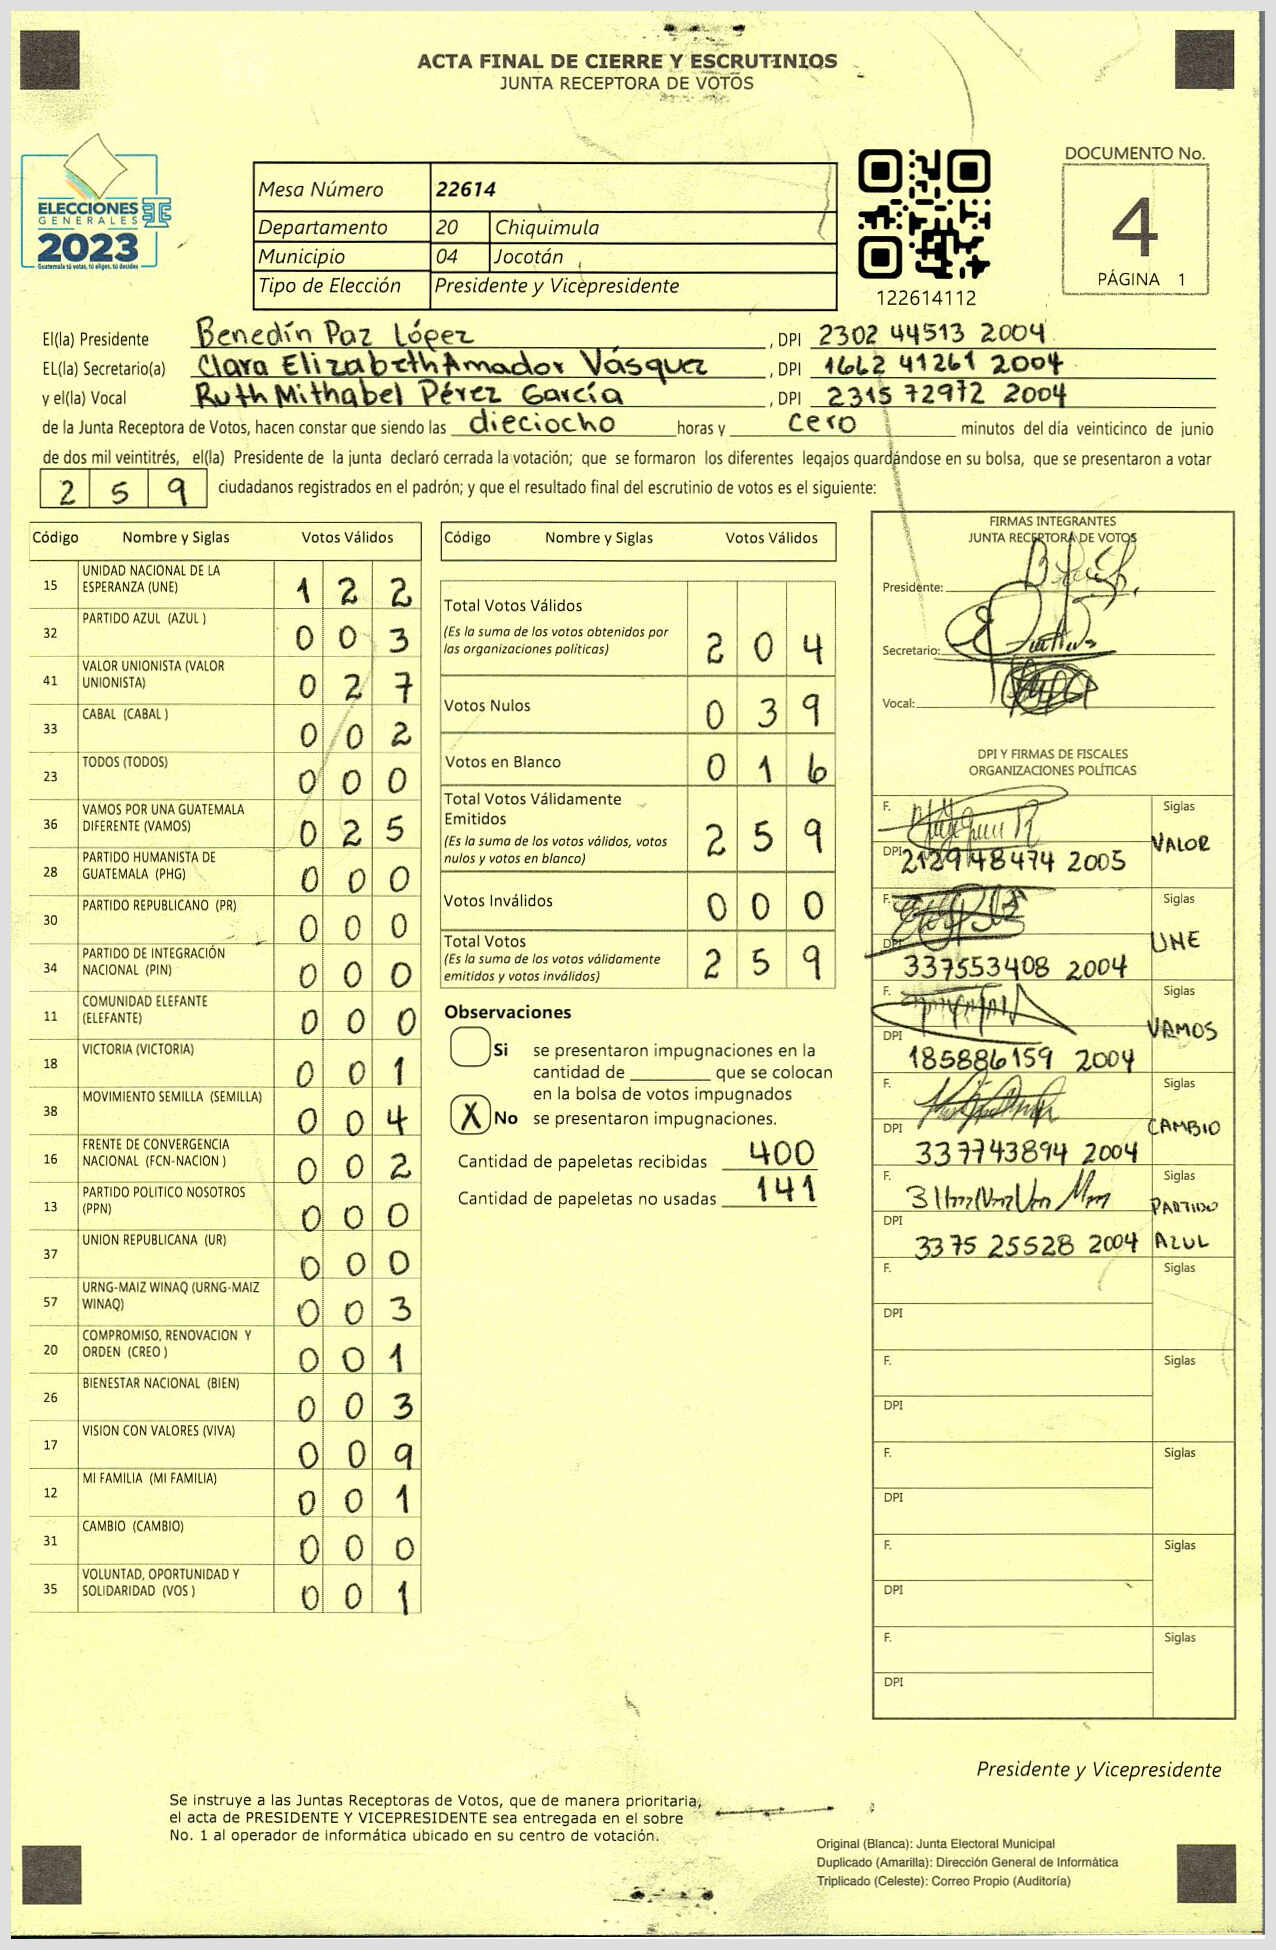 ACTA FINAL DE CIERRE Y ESCRUTINIOS
JUNTA RECEPTORA DE VOTOS
ELECCIONES
GENERALES
2023
Guatemala tú votas, tú eliges, tú decides
Mesa Número 22614
Departamento 20 Chiquimula
Municipio 04 Jocotán
Tipo de Elección Presidente y Vicepresidente
122614112
DOCUMENTO No.
4
PÁGINA 1
El(la) Presidente Benedín Paz López, DPI 2302 44513 2004
EL(la) Secretario(a) Clara Elizabeth Amador Vásquez, DPI 1662 41261 2004
y el(la) Vocal Ruth Mithabel Pérez García, DPI 2315 72972 2004
de la Junta Receptora de Votos, hacen constar que siendo las dieciocho horas y cero minutos del día veinticinco de junio
de dos mil veintitrés, el(la) Presidente de la junta declaró cerrada la votación; que se formaron los diferentes legajos guardándose en su bolsa, que se presentaron a votar
2 5 9 ciudadanos registrados en el padrón; y que el resultado final del escrutinio de votos es el siguiente:
Código Nombre y Siglas Votos Válidos
15 UNIDAD NACIONAL DE LA
ESPERANZA (UNE) 1 2 2
32 PARTIDO AZUL (AZUL ) 0 0 3
41 VALOR UNIONISTA (VALOR
UNIONISTA) 0 2 7
33 CABAL (CABAL ) 0 0 2
23 TODOS (TODOS) 0 0 0
36 VAMOS POR UNA GUATEMALA
DIFERENTE (VAMOS) 0 2 5
28 PARTIDO HUMANISTA DE
GUATEMALA (PHG) 0 0 0
30 PARTIDO REPUBLICANO (PR) 0 0 0
34 PARTIDO DE INTEGRACIÓN
NACIONAL (PIN) 0 0 0
11 COMUNIDAD ELEFANTE
(ELEFANTE) 0 0 0
18 VICTORIA (VICTORIA) 0 0 1
38 MOVIMIENTO SEMILLA (SEMILLA) 0 0 4
16 FRENTE DE CONVERGENCIA
NACIONAL (FCN-NACION ) 0 0 2
13 PARTIDO POLITICO NOSOTROS
(PPN) 0 0 0
37 UNION REPUBLICANA (UR) 0 0 0
57 URNG-MAIZ WINAQ (URNG-MAIZ
WINAQ) 0 0 3
20 COMPROMISO, RENOVACION Y
ORDEN (CREO ) 0 0 1
26 BIENESTAR NACIONAL (BIEN) 0 0 3
17 VISION CON VALORES (VIVA) 0 0 9
12 MI FAMILIA (MI FAMILIA) 0 0 1
31 CAMBIO (CAMBIO) 0 0 0
35 VOLUNTAD, OPORTUNIDAD Y
SOLIDARIDAD (VOS ) 0 0 1
Código Nombre y Siglas Votos Válidos
Total Votos Válidos
(Es la suma de los votos obtenidos por
las organizaciones políticas) 2 0 4
Votos Nulos 0 3 9
Votos en Blanco 0 1 6
Total Votos Válidamente
Emitidos
(Es la suma de los votos válidos, votos
nulos y votos en blanco) 2 5 9
Votos Inválidos 0 0 0
Total Votos
(Es la suma de los votos válidamente
emitidos y votos inválidos) 2 5 9
Observaciones
Si se presentaron impugnaciones en la
cantidad de ________ que se colocan
en la bolsa de votos impugnados
X No se presentaron impugnaciones.
Cantidad de papeletas recibidas 400
Cantidad de papeletas no usadas 141
FIRMAS INTEGRANTES
JUNTA RECEPTORA DE VOTOS
Presidente:
Secretario:
Vocal:
DPI Y FIRMAS DE FISCALES
ORGANIZACIONES POLÍTICAS
F. Siglas
DPI 2129 48474 2005 VALOR
F. Siglas
DPI 337553408 2004 UNE
F. Siglas
DPI 185886159 2004 VAMOS
F. Siglas
DPI 337743894 2004 CAMBIO
F. Siglas
DPI 3375 25528 2004 PARTIDO AZUL
F. Siglas
DPI
F. Siglas
DPI
F. Siglas
DPI
F. Siglas
DPI
F. Siglas
DPI
Presidente y Vicepresidente
Se instruye a las Juntas Receptoras de Votos, que de manera prioritaria,
el acta de PRESIDENTE Y VICEPRESIDENTE sea entregada en el sobre
No. 1 al operador de informática ubicado en su centro de votación.
Original (Blanca): Junta Electoral Municipal
Duplicado (Amarilla): Dirección General de Informática
Triplicado (Celeste): Correo Propio (Auditoría)